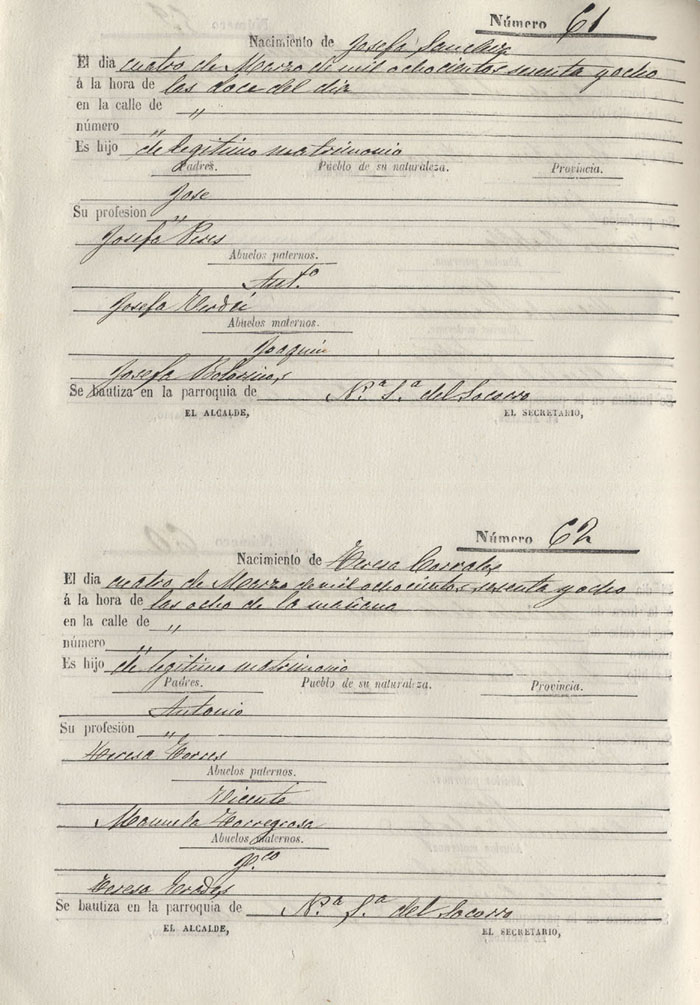 Número 61
Nacimiento de Josefa Sanchez
El dia cuatro de Marzo de mil ochocientos sesenta y ocho
á la hora de las doce del dia
en la calle de "
número "
Es hijo de legitimo matrimonio
Padres. Pueblo de su naturaleza. Provincia.
Jose
Su profesion "
Josefa
Abuelos paternos.
Ant.o
Josefa Verdú
Abuelos maternos.
Joaquin
Josefa
Se bautiza en la parroquia de N.a S.a del Socorro
EL ALCALDE, EL SECRETARIO,
Número 62
Nacimiento de Teresa Corrales
El dia cuatro de Marzo de mil ochocientos sesenta y ocho
á la hora de las ocho de la mañana
en la calle de "
número "
Es hijo de legitimo matrimonio
Padres. Pueblo de su naturaleza. Provincia.
Antonio
Su profesión "
Teresa Torres
Abuelos paternos.
Vicente
Manuela Torregrosa
Abuelos maternos.
Teresa
Se bautiza en la parroquia de N.a S.a del Socorro
EL ALCALDE, EL SECRETARIO,